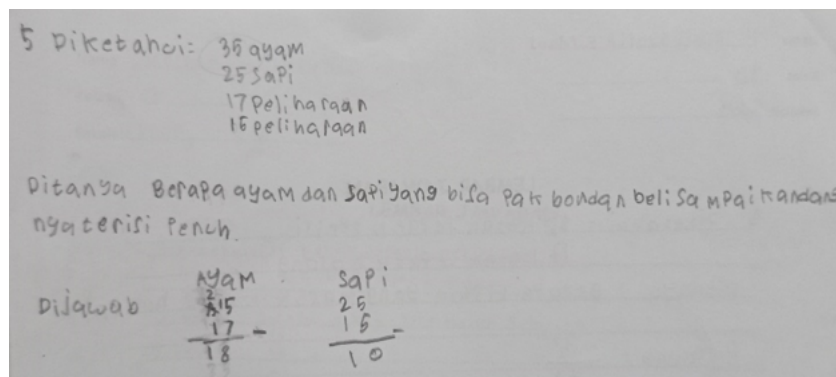 5 Diketahui: 35 ayam
25 Sapi
17 Peliharaan
15 peliharaan
Ditanya Berapa ayam dan sapi yang bisa Pak bondan beli sampai kandang
nya terisi Penuh.
Ayam Sapi
Dijawab 2 15 25
17 - 15 -
18 10